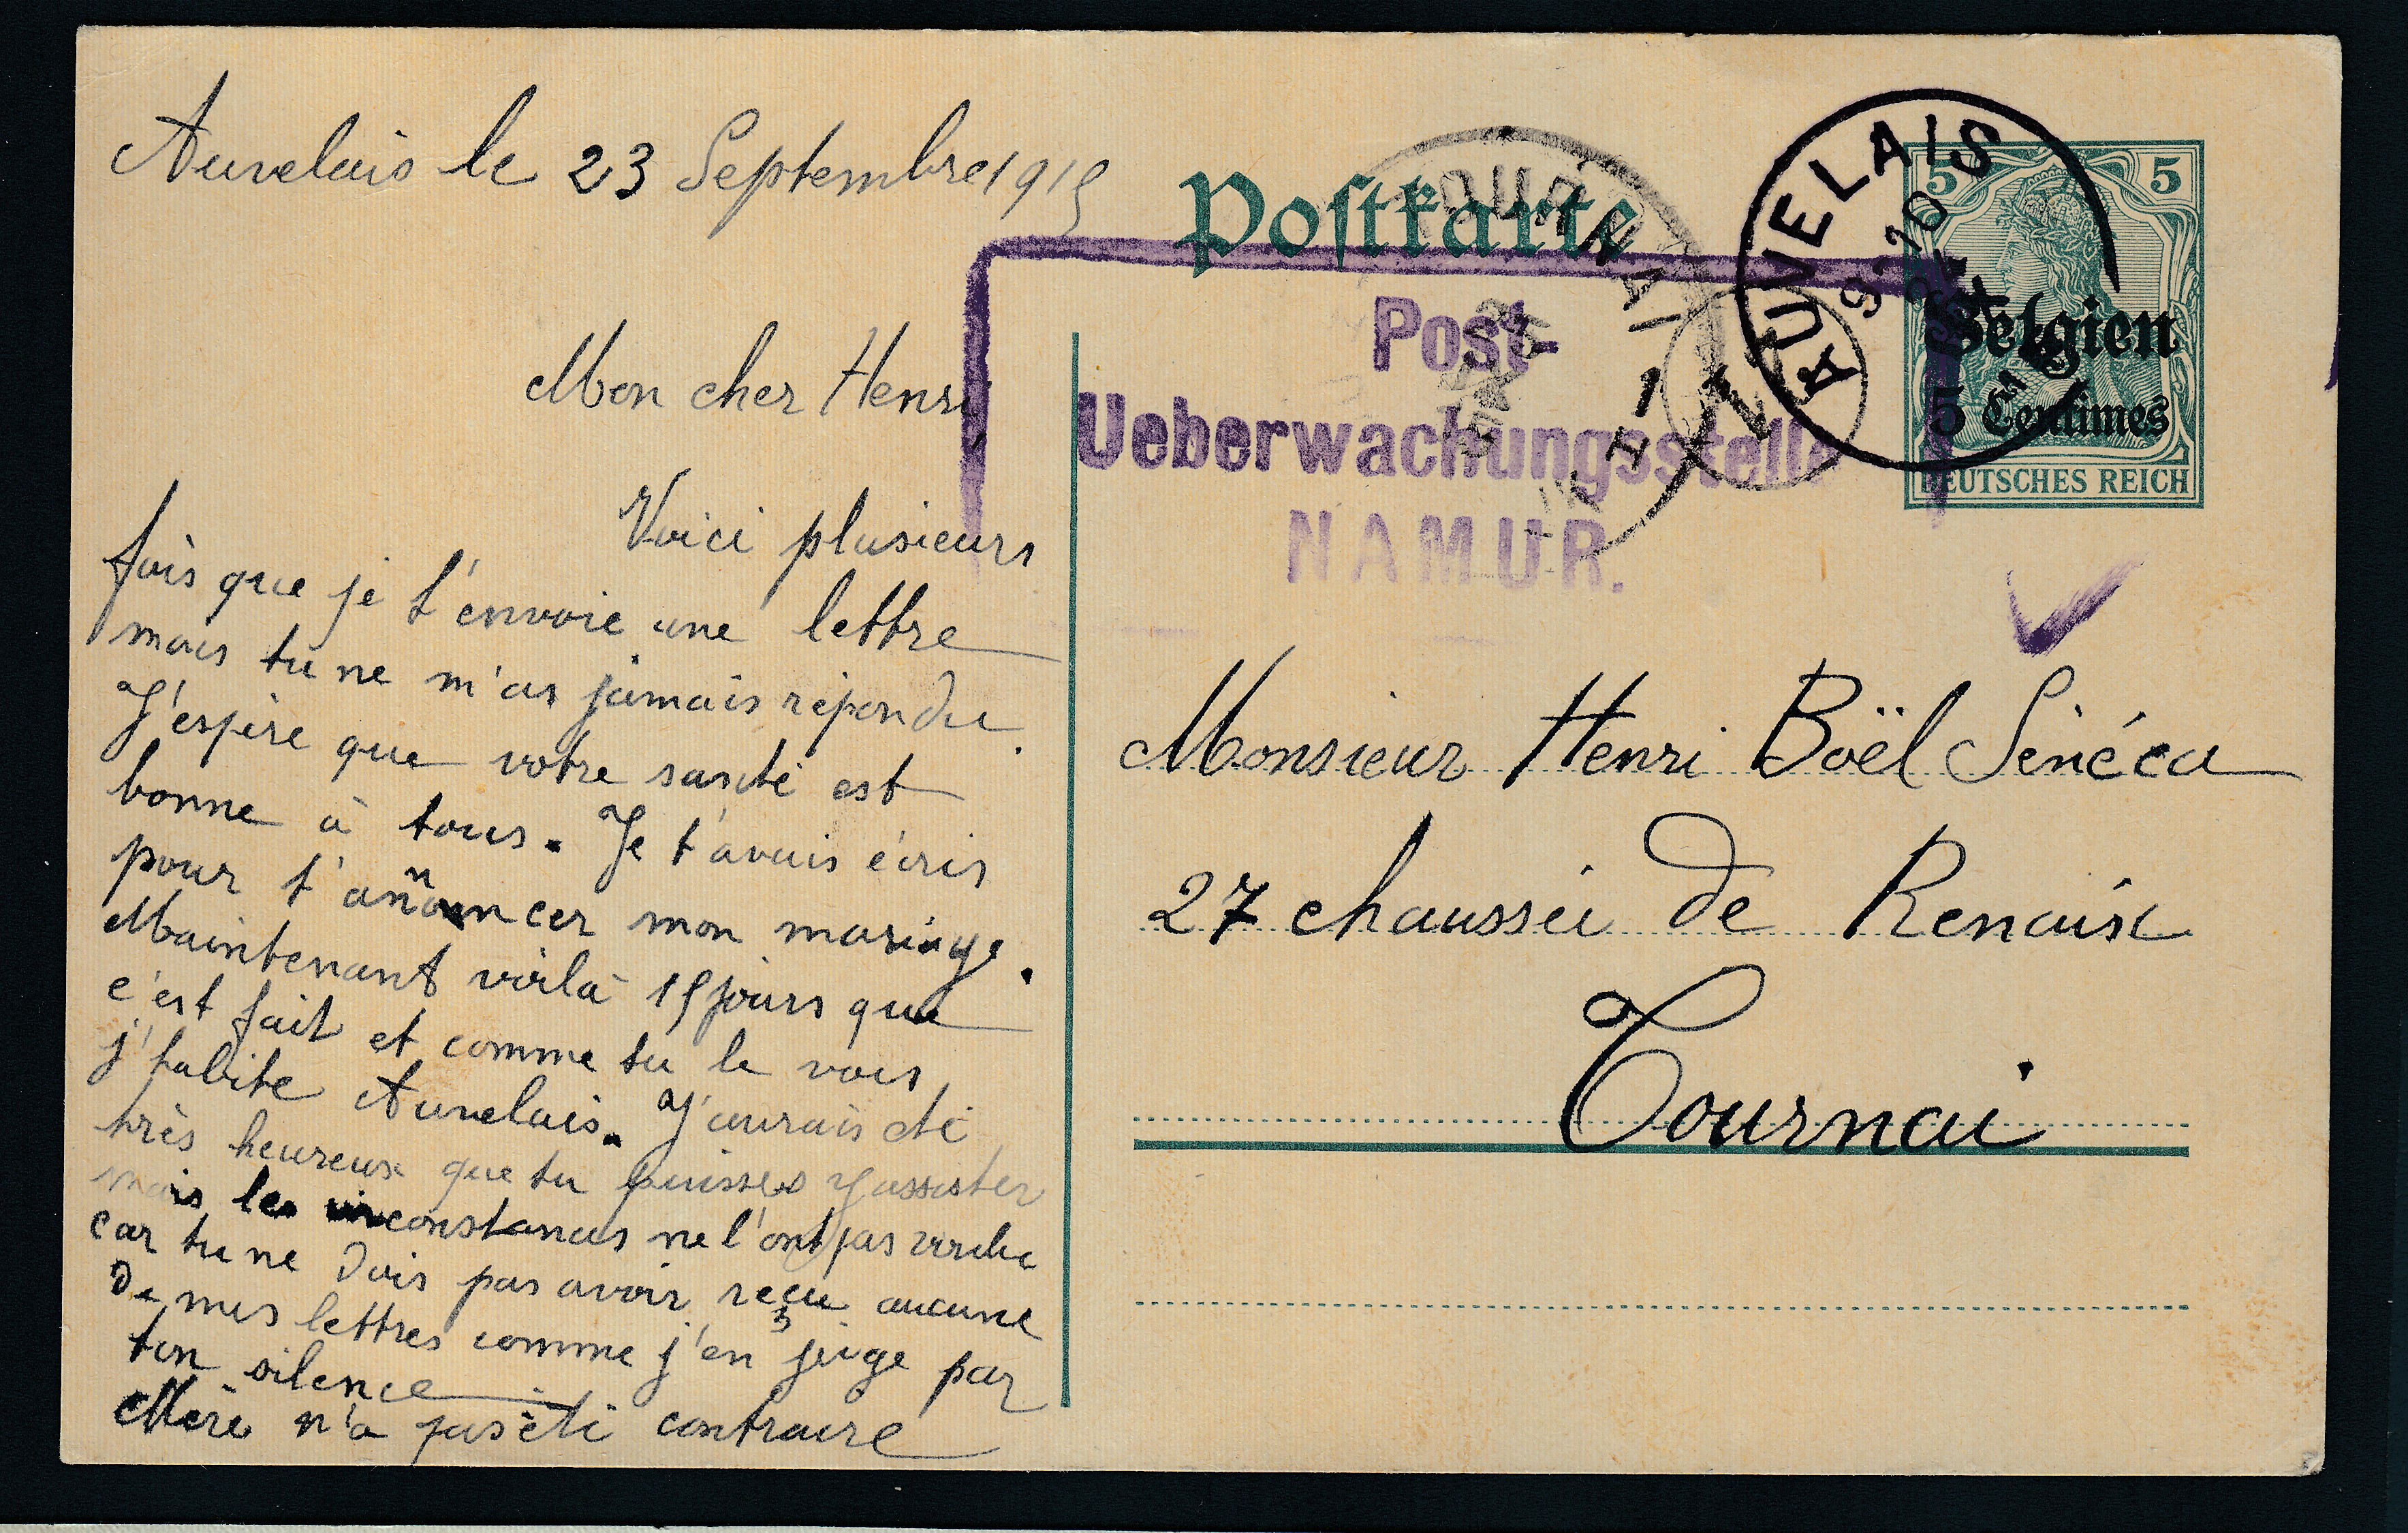 Auvelais le 23 Septembre 1915
Mon cher Henri
Voici plusieurs
fois que je t'envoie une lettre
mais tu ne m'as jamais répondu.
J'espère que votre santé est
bonne à tous. Je t'avais écris
pour t'annoncer mon mariage.
Maintenant voilà 15 jours que
c'est fait et comme tu le vois
j'habite Auvelais. J'aurais été
très heureux que tu puisses y assister
mais les circonstances ne l'ont pas voulu
car tu ne dois pas avoir reçu aucune
de mes lettres comme j'en juge par
ton silence
Mère n'a pas été contraire
Postkarte
TOURNAI
1
AUVELAIS
5 5
Belgien
5 Centimes
DEUTSCHES REICH
Post-
Ueberwachungsstelle
NAMUR.
Monsieur Henri Boël Sénéca
27 chaussée de Renaix
Tournai